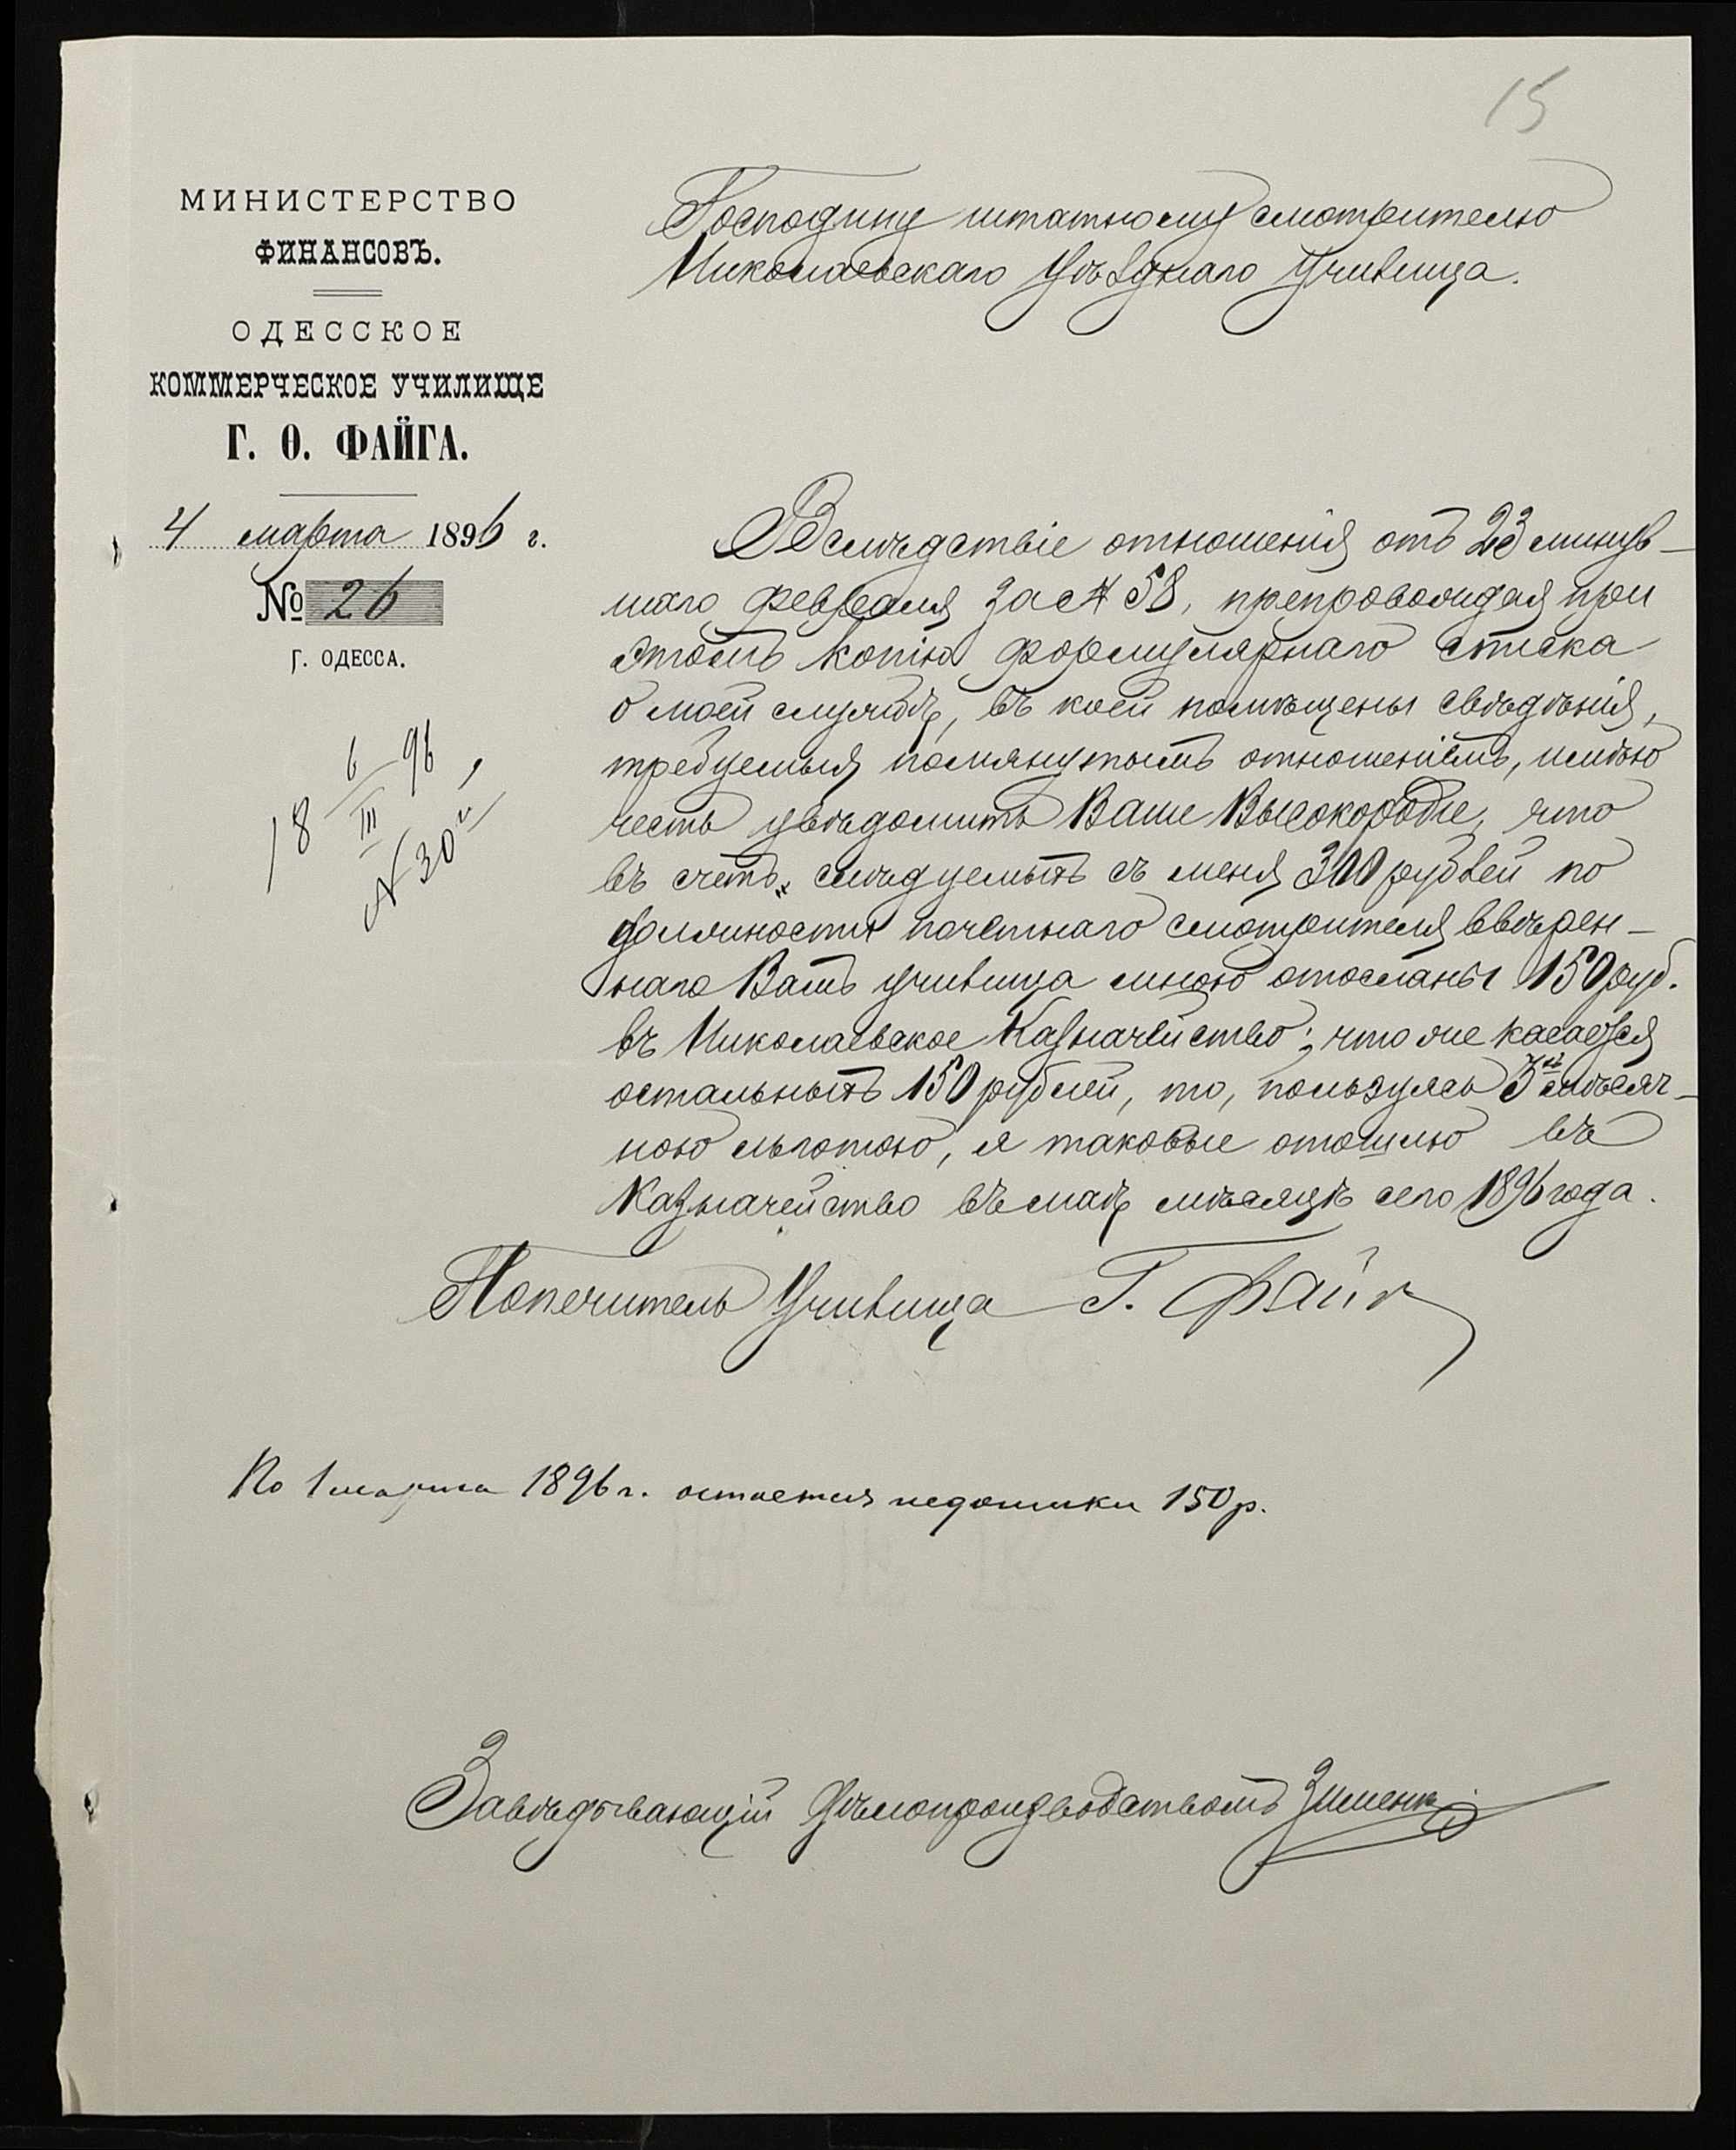 15
МИНИСТЕРСТВО
ФИНАНСОВЪ.
ОДЕССКОЕ
КОММЕРЧЕСКОЕ УЧИЛИЩЕ
Г. Ѳ. ФАЙГА.
4 марта 1896 г.
№ 26
Г. ОДЕССА.
18 6/III 96
№ 30
Господину штатному смотрителю
Николаевскаго Уѣзднаго Училища.
Вслѣдствіе отношенія отъ 23 минув-
шаго февраля за № 58, препровождая при
этомъ копію формулярнаго списка
о моей службѣ, въ коей помѣщены свѣдѣнія,
требуемыя помянутымъ отношеніемъ, имѣю
честь увѣдомить Ваше Высокородіе, что
въ счетъ слѣдуемыхъ съ меня 300 рублей по
должности почетнаго смотрителя ввѣрен-
наго Вамъ училища мною отосланы 150 руб.
въ Николаевское Казначейство; что же касается
остальныхъ 150 рублей, то, пользуясь 3хъ мѣсяч-
ною льготою, я таковые отошлю въ
Казначейство въ маѣ мѣсяцѣ сего 1896 года.
Попечитель Училища Г. Файг
По 1 марта 1896 г. остается недоимки 150 р.
Завѣдывающій Дѣлопроизводствомъ